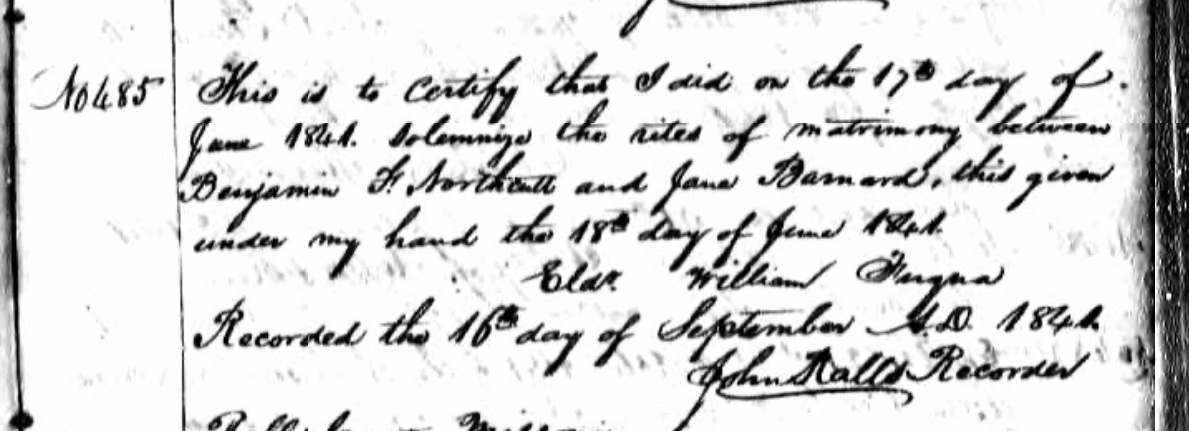 No 485 This is to certify that I did on the 17th day of
June 1841. solemnize the rites of matrimony between
Benjamin F. Northcutt and Jane Barnard, this given
under my hand the 18th day of June 1841.
Eldr. William Fuqua
Recorded the 16th day of September A.D. 1841.
John Ralls Recorder